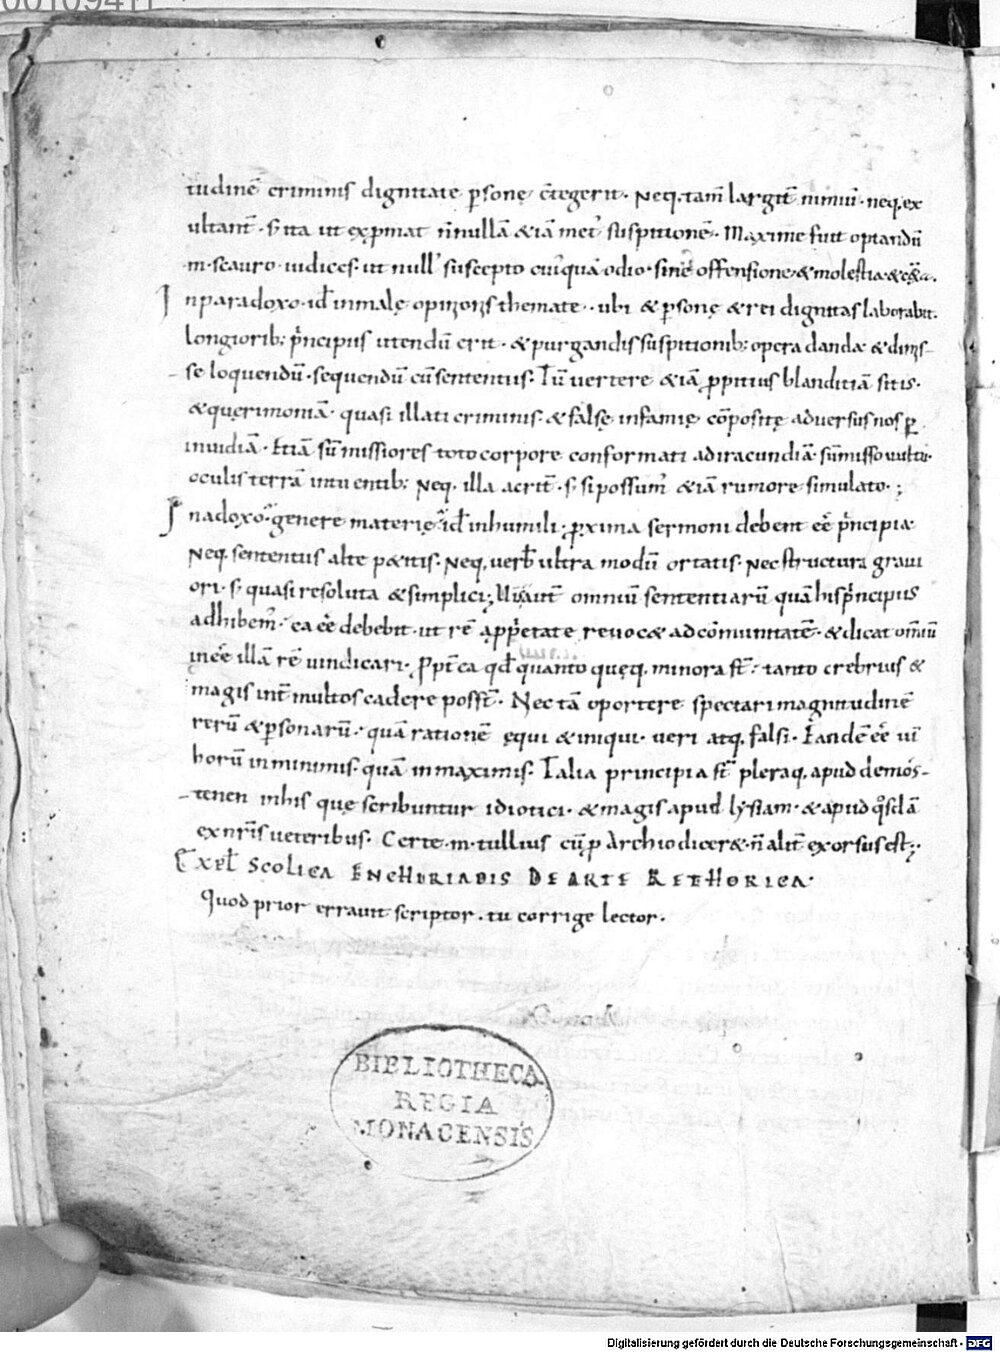 00109411
tudinē criminis dignitate psonę c̄tegerit · Neq. tam̄ largit̄ nimiū · neq. ex
ultant̄ · s; ita ut exp̱mat n̄nullā &iā met᷒ suspitionē · Maxime fuit optandū
m · scauro · iudices · ut null᷒ suscepto cui᷒quā odio · sine offensione & molestia & c&̄a.
In paradoxo · id̄ in male opinionis themate · ubi & psonę & rei dignitas laborabit.
longiorib; p̄ncipiis utendū erit · & purgandis suspitionib; opera danda & dimis-
se loquendū · sequendū cū sententiis · Tū vertere &iā p̱pitius blanditiā sitis ·
& quęrimoniā · quasi illati criminis · & falsę infamię cōpositę adversus nos p̱
invidiā · Etiā sūmissiores toto corpore conformati ad iracundiā · sūmisso vultu ·
oculis terrā intuentib; Neq. illa acrit̄ · s; si possum᷒ &iā rumore simulato · ;
In adoxo genere materię id̄ in humili · p̱xima sermoni debent eē p̄ncipia
Neq. sententiis alte p&itis · Neq. verb̄ ultra modū ortatis · Nec structura gravi
ori · s; quasi resoluta & simplici; Vis aut̄ omniū sententiarū quā his p̄ncipiis
adhibem᷒ · ea eē debebit · ut rē ap̱p̱etate revoc& ad cōmunitatē · & dicat omniū
int̄eē illā rē vindicari · P̱pt̄ea qd̄ quanto quęq. minora st̄ · tanto crebrius &
magis int̄ multos cadere posst̄ · Nec tā oportere spectari magnitudinē
rerū & psonarū · quā rationē ęqui & iniqui · veri atq. falsi · Eandē eē vī
horū in minimis · quā in maximis · Talia principia st̄ pleraq. apud demos-
tenen in his quę scribuntur idiotici · & magis apud lysiam · & apud q°sdā
ex nr̄is veteribus · Certe · m · tullius cū p̱ Archio dicer& · n̄ alit̄ exorsus est ·;
Expl̄ Scolica Enchiriadis De arte Rethorica ·
Quod prior erravit scriptor · tu corrige lector ·
BIBLIOTHECA
REGIA
MONACENSIS
Digitalisierung gefördert durch die Deutsche Forschungsgemeinschaft - DFG